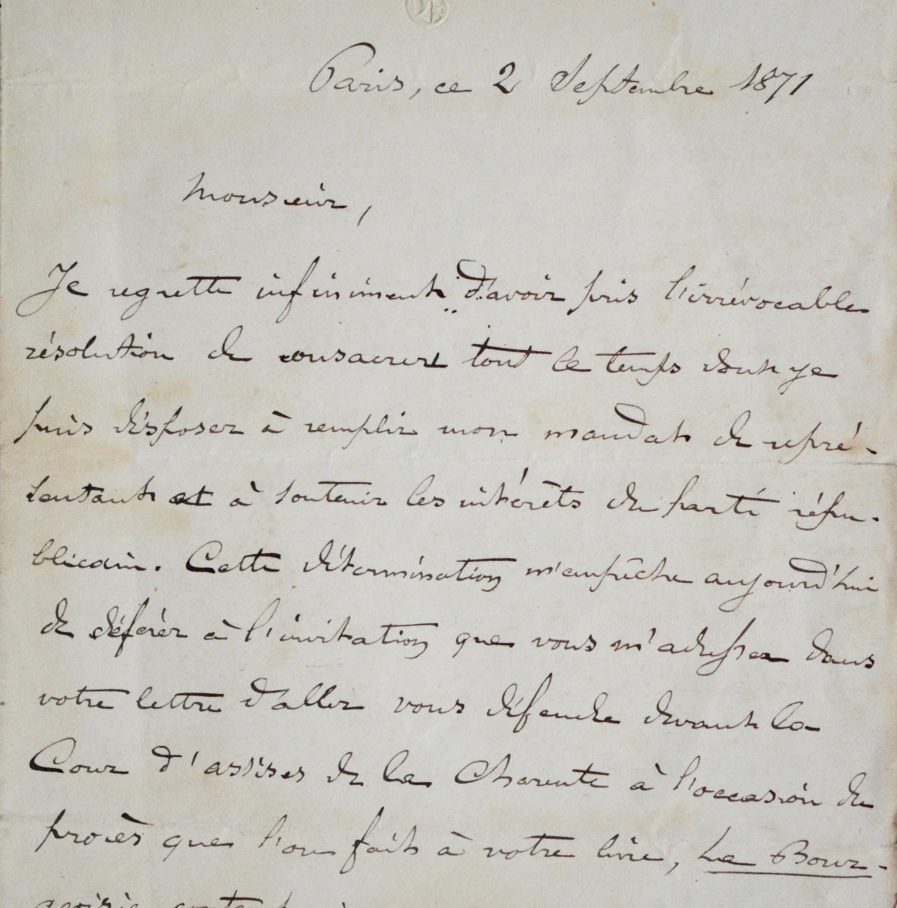 Paris, ce 2 Septembre 1871
Monsieur,
Je regrette infiniment d'avoir pris l'irrévocable
résolution de consacrer tout le temps dont je
puis disposer à remplir mon mandat de repré-
sentant et à soutenir les intérêts du parti répu-
blicain. Cette détermination m'empêche aujourd'hui
de déférer à l'invitation que vous m'adressez dans
votre lettre d'aller vous défendre devant la
Cour d'assises de la Charente à l'occasion du
procès que l'on fait à votre livre, La Bour-
geoisie